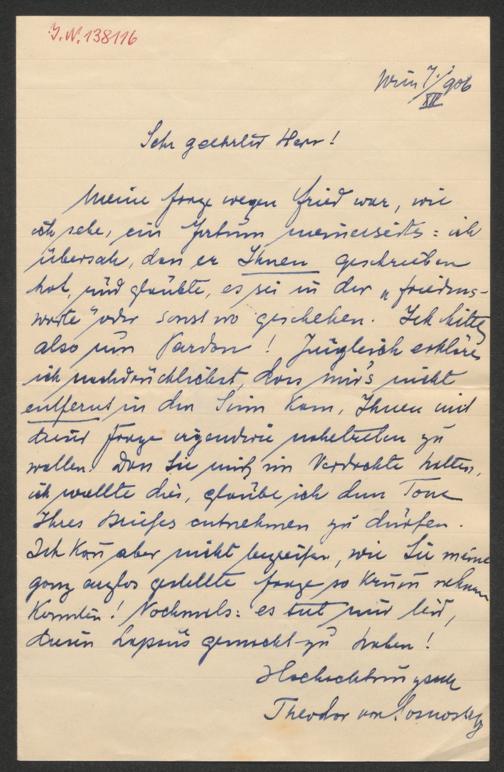 J.N. 138116
Wien 7./XII 906
Sehr geehrter Herr!
Meine Frage wegen Fried war, wie
ich sehe, ein Irrtum meinerseits: ich
übersah, dass er Ihnen geschrieben
hat, und glaubte, es sei in der „Friedens-
warte" oder sonst wo geschehen. Ich bitte
also um Pardon! Zugleich erkläre
ich nachdrücklichst, dass mir's nicht
entfernt in den Sinn kam, Ihnen mit
dieser Frage irgendwie nahetreten zu
wollen. Dass Sie mich im Verdachte hatten,
ich wollte dies, glaube ich dem Tone
Ihres Briefes entnehmen zu dürfen.
Ich kann aber nicht begreifen, wie Sie meine
ganz arglos gestellte Frage so krumm nehmen
konnten! Nochmals: es tut mir leid,
diesen Lapsus gemacht zu haben!
Hochachtungsvoll
Theodor von Sosnosky